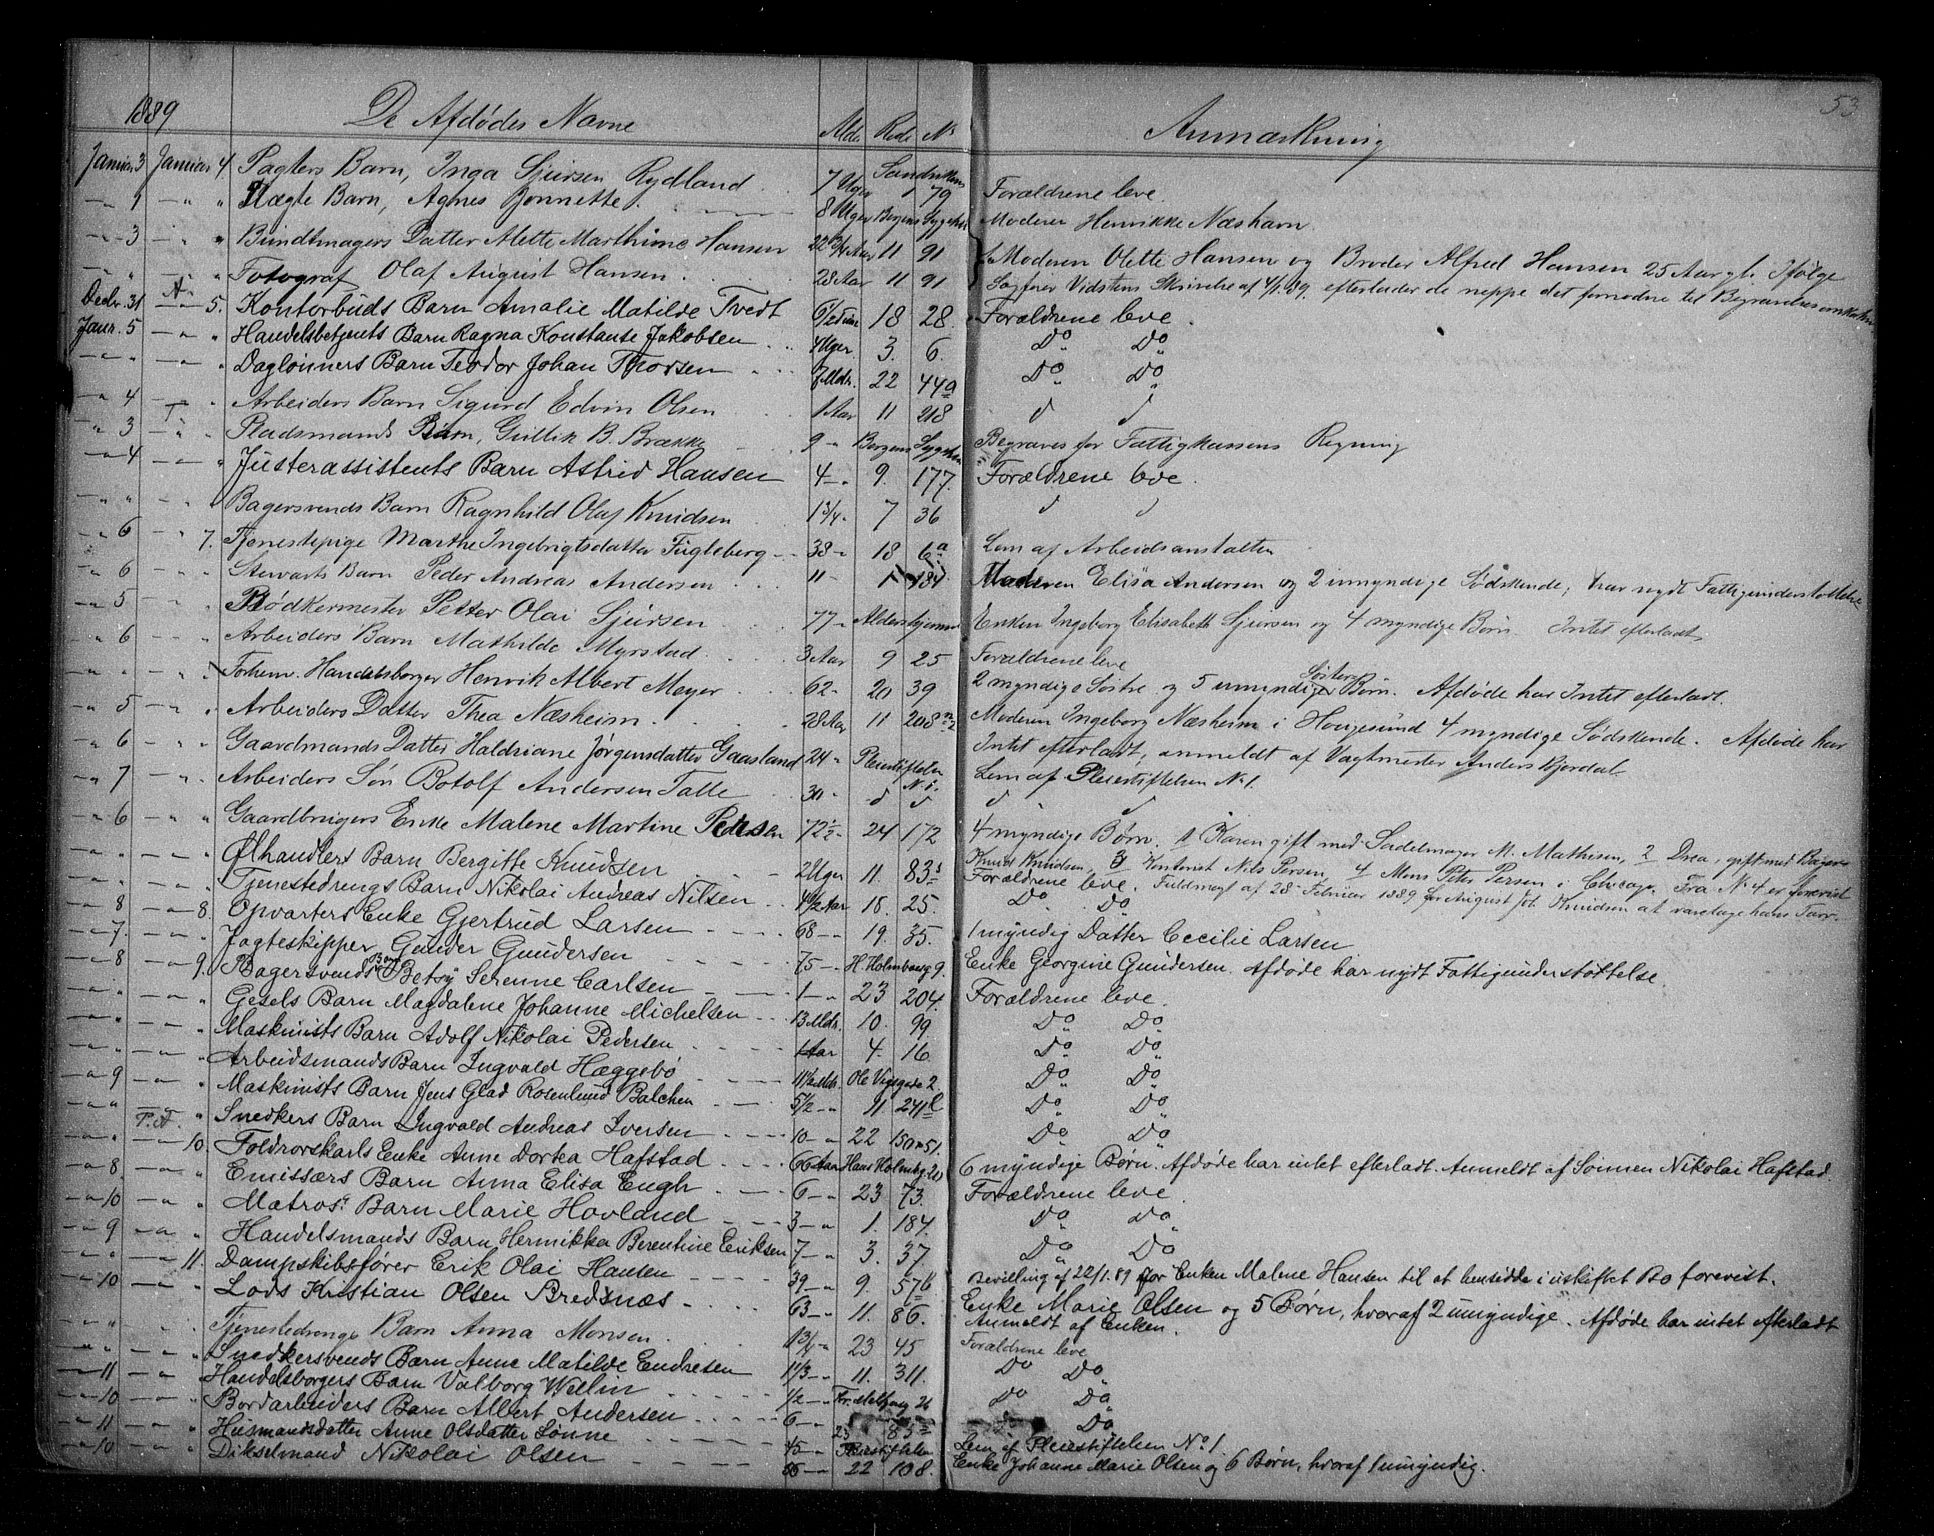 53
1889 De Afdødes Navne Alder Rode No Anmærkning
Januar 3 Januar 4 Pagters Barn, Inga Sjursen Rydland 7 Uger Sandviken 79 Forældrene leve.
" 1 " " Uægte Barn, Agnes Jonnette. 8 Uger Bergens Sygehus Moderen Henrikke Næshavn.
" 3 " " Bundtmagers Datter Alette Marthine Hansen 22 Aar 11 91 Moderen Olette Hansen og Broder Alfred Hansen 25 Aar gl. Ifølge
" " " " Fotograf Olaf August Hansen 28 Aar 11 91 Sagfører Vidstens Skrivelse af 4/1 89. efterlader de neppe det fornødne til
Decbr. 31 A. 5. Kontorbuds Barn Amalie Matilde Tvedt 6 1/2 Time 18 28. Forældrene leve.
Janr. 5 " " Handelsbetjents Barn Ragna Konstanse Jakobsen 4 Uger. 3. 6. Do Do
" " " Dagløinners Barn Teodor Johan Thorsen 7 Mdr. 22 449 Do Do
" 4 " " Arbeiders Barn Sigurd Edvin Olsen 1 Aar 11 218 " "
" 3 T. " Pladsmands Barn, Gullik B. Brække 9 " Bergens Sygehus Begraves for Fattigkassens Regning
" 4 " " Justerassistents Barn Astrid Hansen 4 " 9. 177. Forældrene leve.
" " " " Bagersvends Barn Ragnhild Olaf Knudsen 1 3/4 " 7 36 " "
" 6 " 7. Tjenestepige Marthe Ingebrigtsdatter Fugleberg 38 " 18 6a Lem af Arbeidsanstalten
" 6 " " Stewarts Barn Peder Andreas Andersen 11 " 1 184 Moderen Elisa Andersen og 2 umyndige Sødskende, har nydt Fattigunderstøttelse
" 5 " " Bødkermester Petter Olai Sjursen 77 " Aldershjemmet Enken Ingeborg Elisabeth Sjursen og 4 myndige Børn. Intet efterladt
" 6 " " Arbeiders Barn Mathilde Myrstad 3 Aar 9 25 Forældrene leve
" " " " Forhenv. Handelsborger Henrik Albert Meyer 62 " 20 39 2 myndige Søstre og 5 umyndige Søsters Børn. Afdøde har Intet efterladt.
" 5 " " Arbeiders Datter Thea Næsheim 28 Aar 11 208 Moderen Ingeborg Næsheim i Haugesund 4 myndige Sødskende. Afdøde har
" 6 " " Gaardmands Datter Haldriane Jørgensdatter Gaasland 24 " Pleiestiftelsen No 1. Intet efterladt, anmeldt af Vagtmester Anders Bjordal
" 7 " " Arbeiders Søn Botolf Andersen Tatle 30 " " " Lem af Pleiestiftelsen No 1.
" 6 " " Gaardbrugers Enke Malene Martine Pedersen 72 1/2 " 24 172 4 myndige Børn. 1 Karen gift med Sadelmager M. Mathisen, 2 Drea, gift med Bager
" " " " Ølhandlers Barn Bergitte Knudsen 2 Uger 11. 83 Knud Knudsen, 3 Kontorist Nils Persen, 4 Mons Peter Persen i Chicago. Fra No 4 er forevist
" " " " Tjenestedrengs Barn Nikolai Andreas Nilsen 4 1/2 Aar 18. 25. Forældrene leve. Fuldmagt af 28 Februar 1889 for August Joh. Knudsen at varetage hans Tarv.
" 8 " 8. Opvarters Enke Gjertrud Larsen 68 " 19. 35. 1 myndig Datter Cecilie Larsen
" 7. " " Jagteskipper Gunder Gundersen 75 " H. Holmboeg 9. Enke Georgine Gundersen. Afdøde har nydt Fattigunderstøttelse.
" 8 " 9. Bagersvends Barn Betsy Serenne Carlsen 1 " 23 204. Forældrene leve.
" " " " Gesels Barn Magdalene Johanne Michelsen 13 Mdr. 10. 99 Do Do
" " " " Maskinists Barn Adolf Nikolai Pedersen 1 Aar 4. 16. Do Do
" " " " Arbeidsmands Barn Ingvald Hæggebø 11 1/2 Mdr. Ole Vigsgade 2. Do Do
" 9 " " Maskinists Barn Jens Glad Rosenlund Balchen 5 1/2 " 11 241 Do Do
" " P. A. " Snedkers Barn Ingvald Andreas Iversen 10 " 22 150 51. Do Do
" " 10. Foldrorskarls Enke Anne Dorka Hafstad 66 Aar Hans Holmbg 20 6 myndige Børn. Afdøde har intet efterladt. Anmeldt af Sønnen Nikolai Hafstad.
" 8. " " Emissærs Barn Anna Elisa Engh 6 " 23 73. Forældrene leve.
" 10 " " Matros. Barn Marie Hovland 3 " 1. 184. Do Do
" 9 " " Handelsmands Barn Hermikka Berentine Eriksen 7 " 3. 37. Do Do
" " 11. Dampskibsfører Erik Olai Hansen 39 " 9. 57b Bevilling af 22/1. 89 for Enken Malene Hansen til at hensidde i uskiftet Bo forevist.
" 10 " " Lods Kristian Olsen Bredsnæs 63 " 11. 86. Enke Marie Olsen og 5 Børn, hvoraf 2 umyndige. Afdøde har intet efterladt
Anmeldt af Enken.
" " " " Tjenestedrengs Barn Anna Monsen 1 3/4 " 23 45 Forældrene leve
" " " " Snedkersvends Barn Anne Matilde Endresen 1 1/3 " 11. 311. Do Do
" 11 " " Handelsborgers Barn Valborg Wellin 1/2 " 26 Do Do
" 10 " " Bordarbeiders Barn Albert Andersen 6 " 23 85 Do
" 11 " " Husmandsdatter Anne Olsdatter Sønne 45 " Pleiestiftelsen Lem af Pleiestiftelsen No 1.
" 10 " " Dikselmand Nikolai Olsen 56 " 22 108. Enke Johanne Marie Olsen og 6 Børn, hvoraf 1 umyndig.